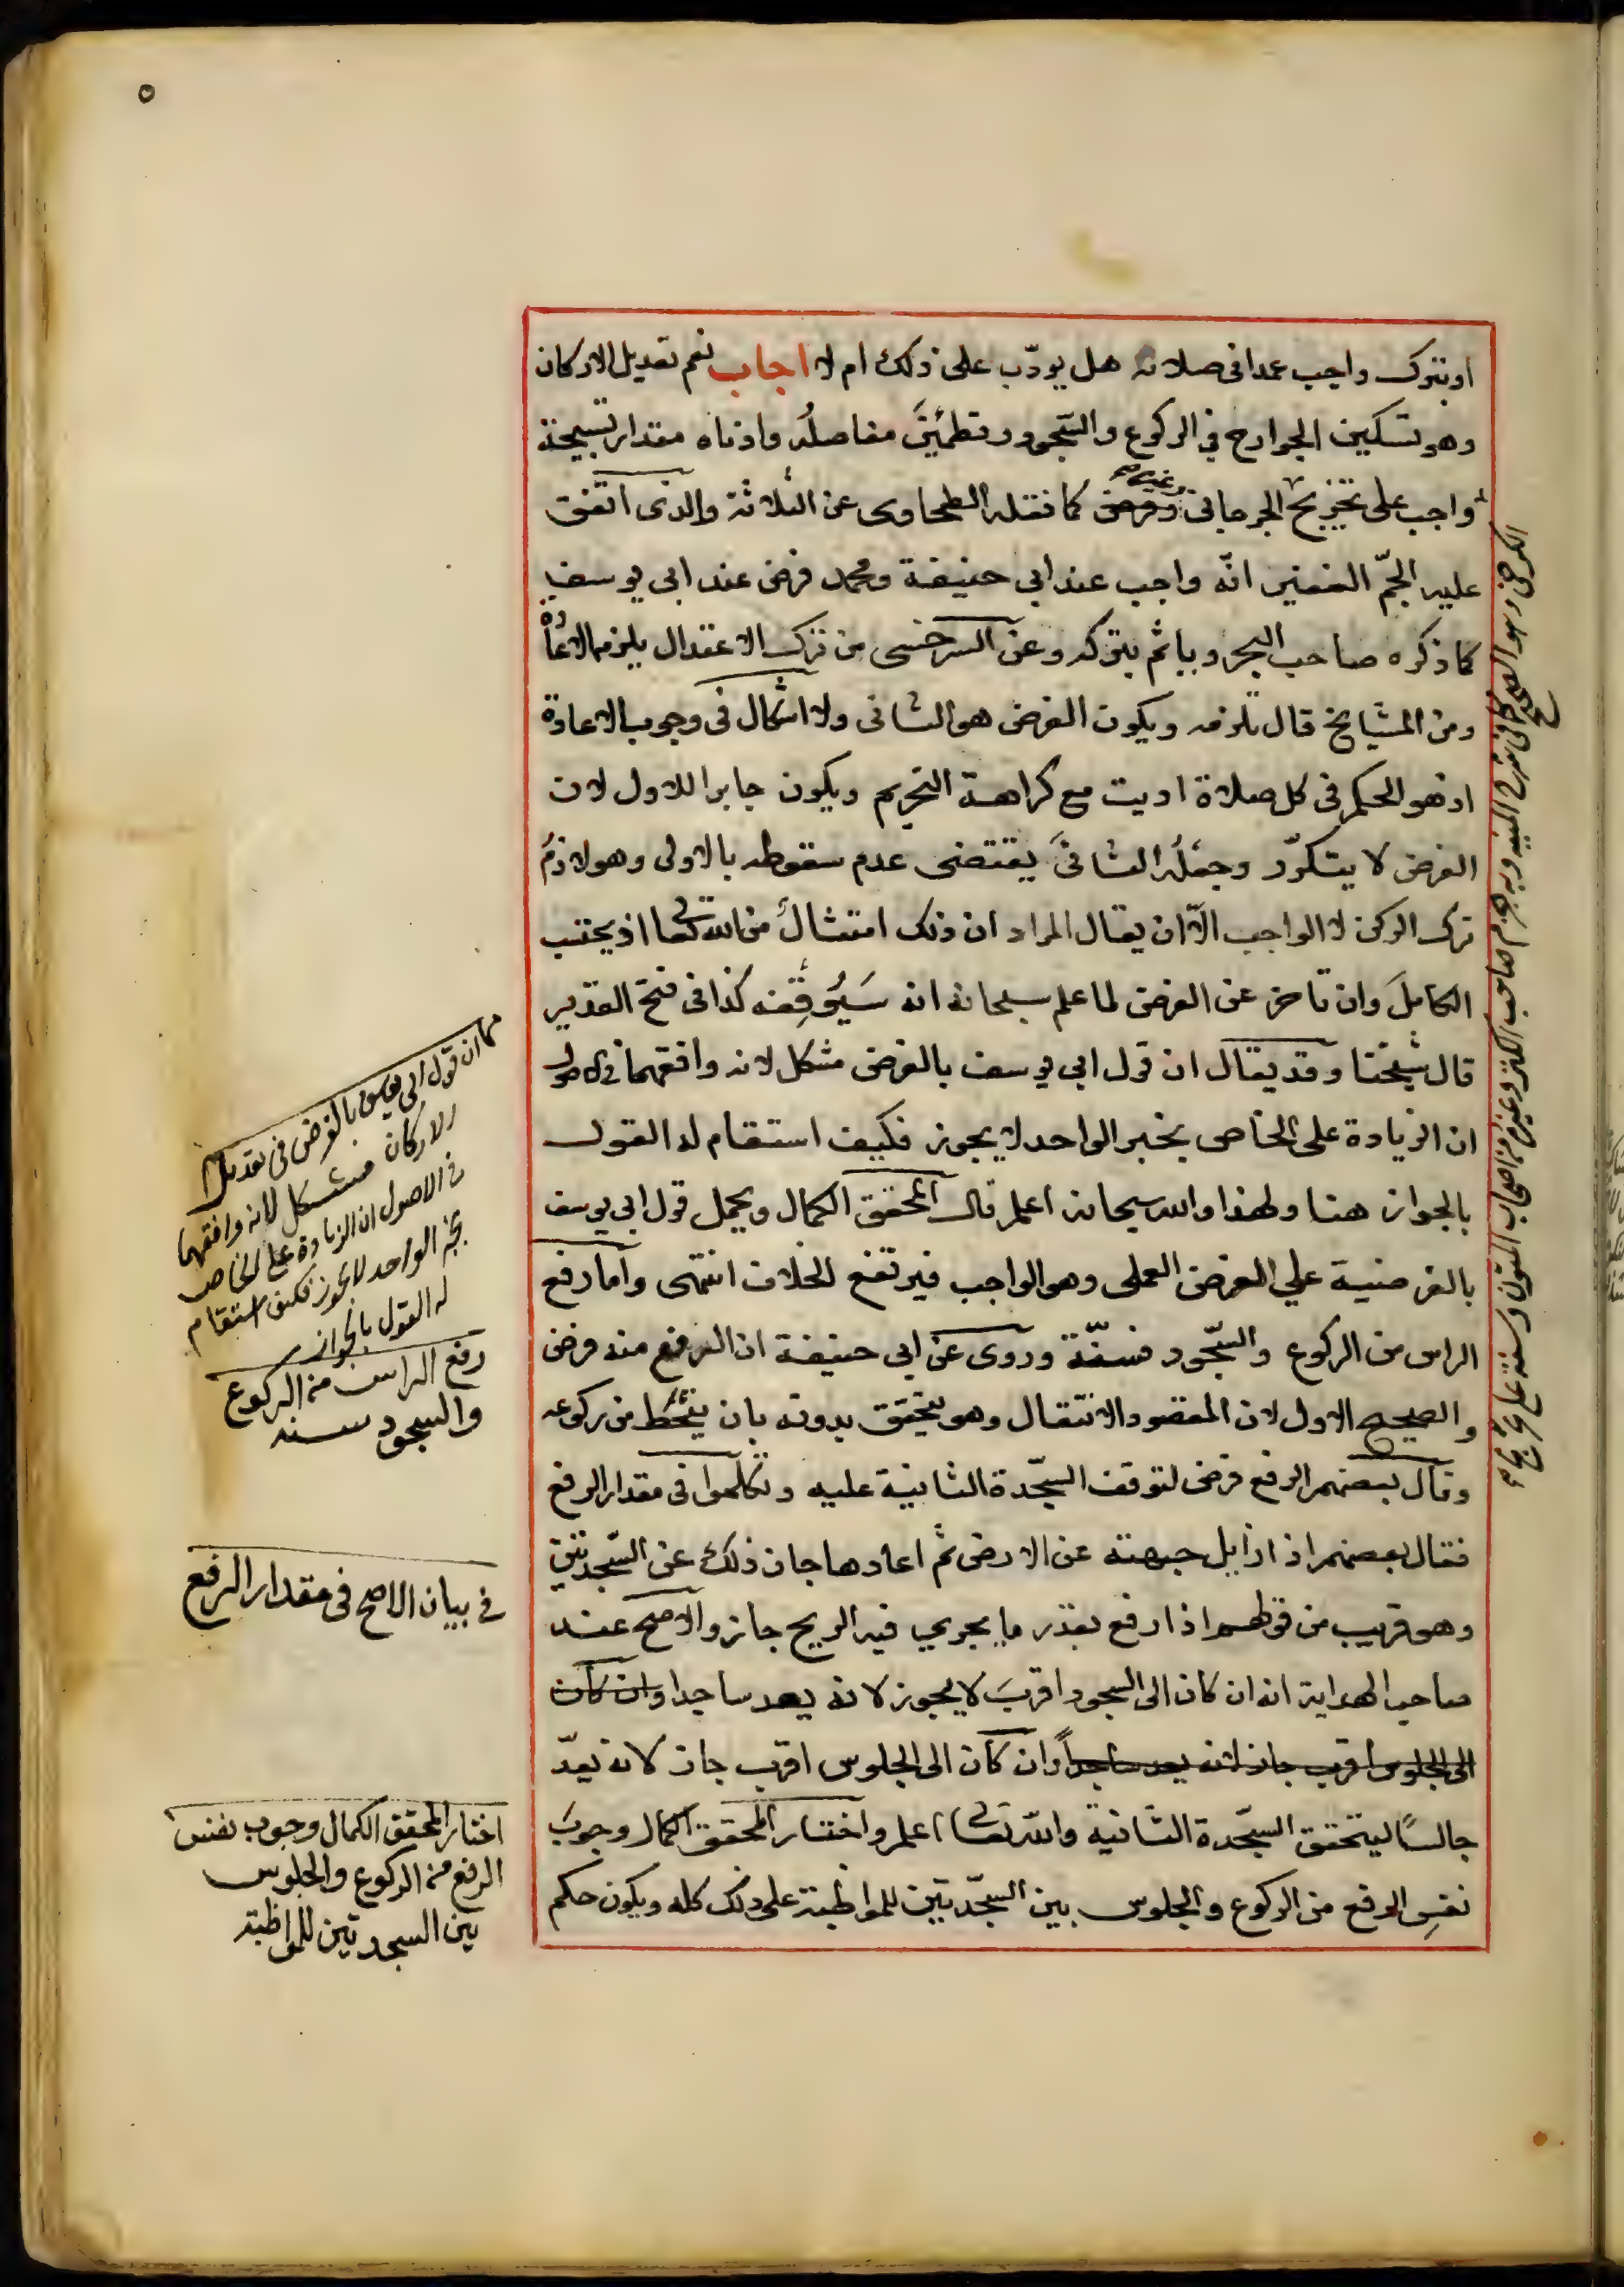 ٥
او بترك واجب عمدا فى صلاته هل يودّب على ذلك ام لا اجاب نعم تعديل الاركان
وهو تسكين الجوارح في الركوع والسّجود وتطمئنّ مفاصلُه وادناه مقدار تسبيحة
واجب على تخريج الجرجانى وفرض كما نقله الطحاوى عن الثلاثة والذى اتفق
عليه الجمّ الغفير انّه واجب عند ابي حنيفة ومحمد فرض عند ابى يوسف
كما ذكره صاحب البحر وياثم بتركه وعن السرخسى من ترك الاعتدال يلزمه الاعادة
ومن المشايخ قال تلزمه ويكون الفرض هو الثانى ولا اشكال فى وجوب الاعادة
اذ هو الحكم فى كل صلاة اديت مع كراهة التحريم ويكون جابرا للاول لان
الفرض لا يتكرّر وجعْلُه الثانىَ يقتضى عدم سقوطه بالاولى وهو لازمُ
ترك الركن لا الواجب الّا ان يقال المراد ان ذلك امتثالٌ من الله تعالى اذ يحتسب
الكاملَ وان تاخر عن الفرض لما علم سبحانه انه سَيُوقِعُه كذا فى فتح القدير
قال شيخنا وقد يقال ان قول ابى يوسف بالفرض مشكل لانه وافقهما فى الاصول
ان الزيادة على الخاص بخبر الواحد لا يجوز فكيف استقام له القول
بالجواز هنا ولهذا والله سبحانه اعلم قال المحقق الكمال ويحمل قول ابى يوسف
بالفرضية علي الفرض العملى وهو الواجب فيرتفع الخلاف انتهى واما رفع
الراس من الركوع والسّجود فسنّة وروى عن ابى حنيفة ان الرفع منه فرض
والصحيح الاول لان المقصود الانتقال وهو يتحقق بدونه بان ينحَطّ من ركوعه
وقال بعضهم الرفع فرض لتوقف السّجدة الثانية عليه وتكلموا فى مقدار الرفع
فقال بعضهم اذا زايل جبهته عن الارض ثم اعادها جاز ذلك عن السّجدتين
وهو قريب من قولهم اذا رفع بقدر ما يجري فيه الريح جاز والاصح عند
صاحب الهداية انه ان كان الى السجود اقربَ لا يجوز لانه يعد ساجدا وان كان
الى الجلوس اقرب جاز لانه يعد ساجداً وان كان الى الجلوس اقرب جاز لانه يعدّ
جالسًا ليتحقق السّجدة الثانية والله تعالى اعلم واختار المحقق الكمال وجوبَ
نفسِ الرفع من الركوع والجلوس بين السجدتين للمواظبة على ذلك كله ويكون حكم
ان قول ابى يوسف بالفرض فى تعديل
الاركان مشكل لانه وافقهما
فى الاصول ان الزيادة على الخاص
بخبر الواحد لا يجوز فكيف استقام
له القول بالجواز
رفع الراس من الركوع
والسجود سنه
فى بيان الاصح فى مقدار الرفع
اختار المحقق الكمال وجوب نفس
الرفع من الركوع والجلوس
بين السجدتين للمواظبة
الكرخى وهو الصحيح كما فى شرح المنيه وبه جزم صاحب الكنز وغيره من اصحاب المتون وسنة على تخريج
وغيره صح